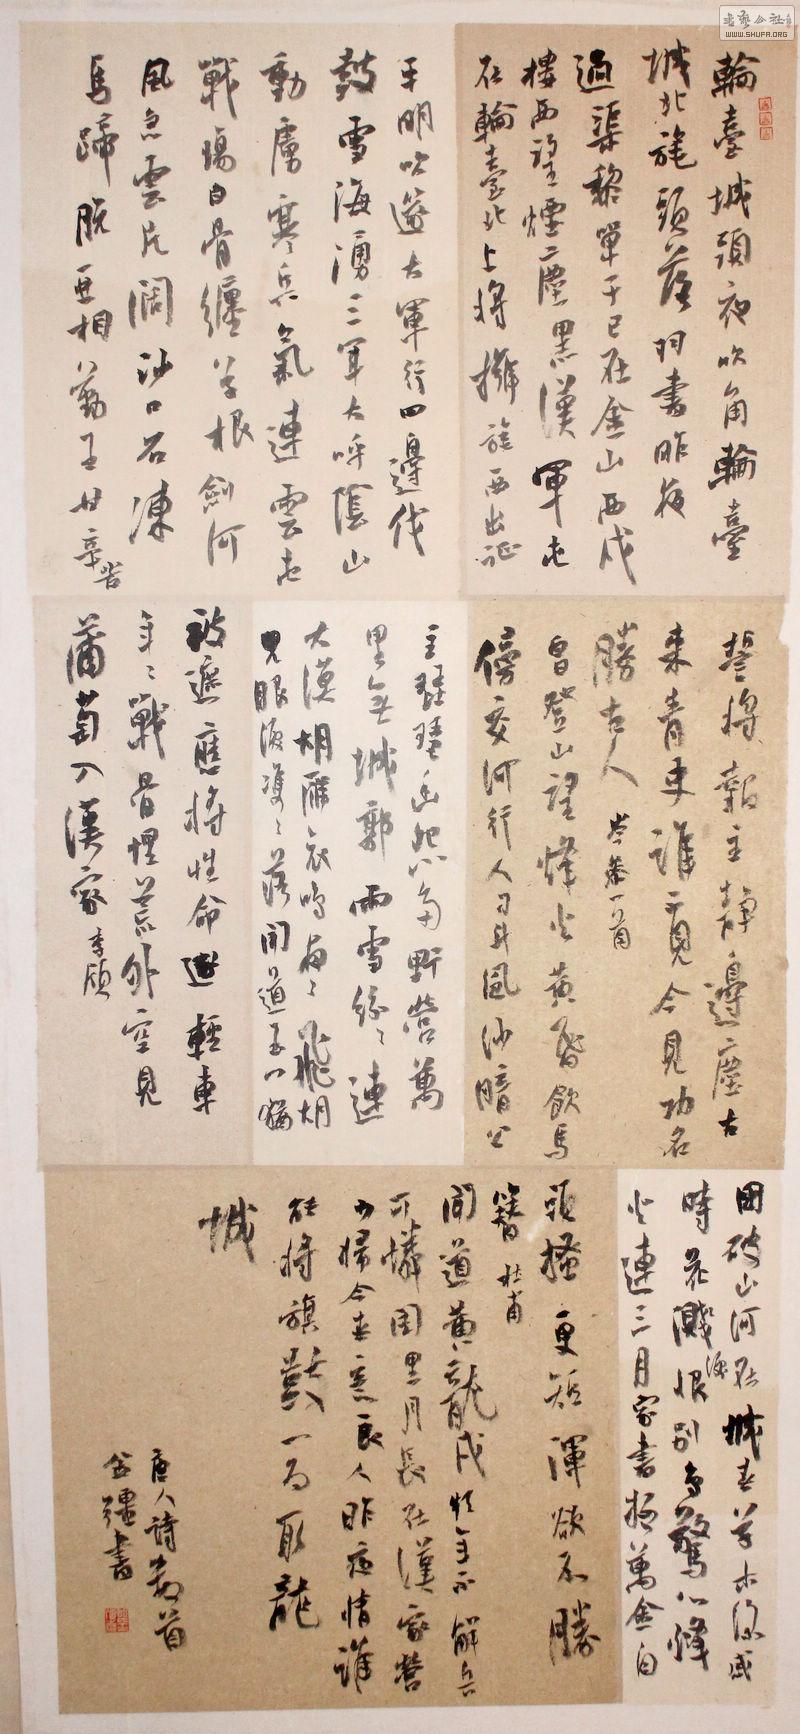 書藝公社
WWW.SHUFA.ORG
輪臺城頭夜吹角輪臺
城北旄頭落羽書昨夜
過渠黎單于已在金山西戍
樓西望煙塵黑漢軍屯
在輪臺北上將擁旄西出征
平明吹邃大軍行四邊伐
鼓雪海湧三軍大呼陰山
動虜塞兵氣連雲屯
戰場白骨纏草根劍河
風急雲片闊沙口石凍
馬蹄脫亞相勤王甘辛苦
誓將報主靜邊塵古
來青史誰不見今見功名
勝古人 岑參一首
白日登山望烽火黃昏飲馬
傍交河行人刁斗風沙暗公
主琵琶幽怨多野營萬
里無城郭雨雪紛々連
大漠胡雁哀鳴夜々飛胡
兒眼淚雙々落聞道玉門猶
被遮應將性命逐輕車
年々戰骨埋荒外空見
蒲萄入漢家 李頎
國破山河在城春草木深感
時花濺淚恨別鳥驚心烽
火連三月家書抵萬金白
頭搔更短渾欲不勝
簪 杜甫
聞道黃龍戍頻年不解兵
可憐閨里月長在漢家營
少婦今春意良人昨夜情誰
能將旗鼓一為取龍
城
唐人詩數首
疆書